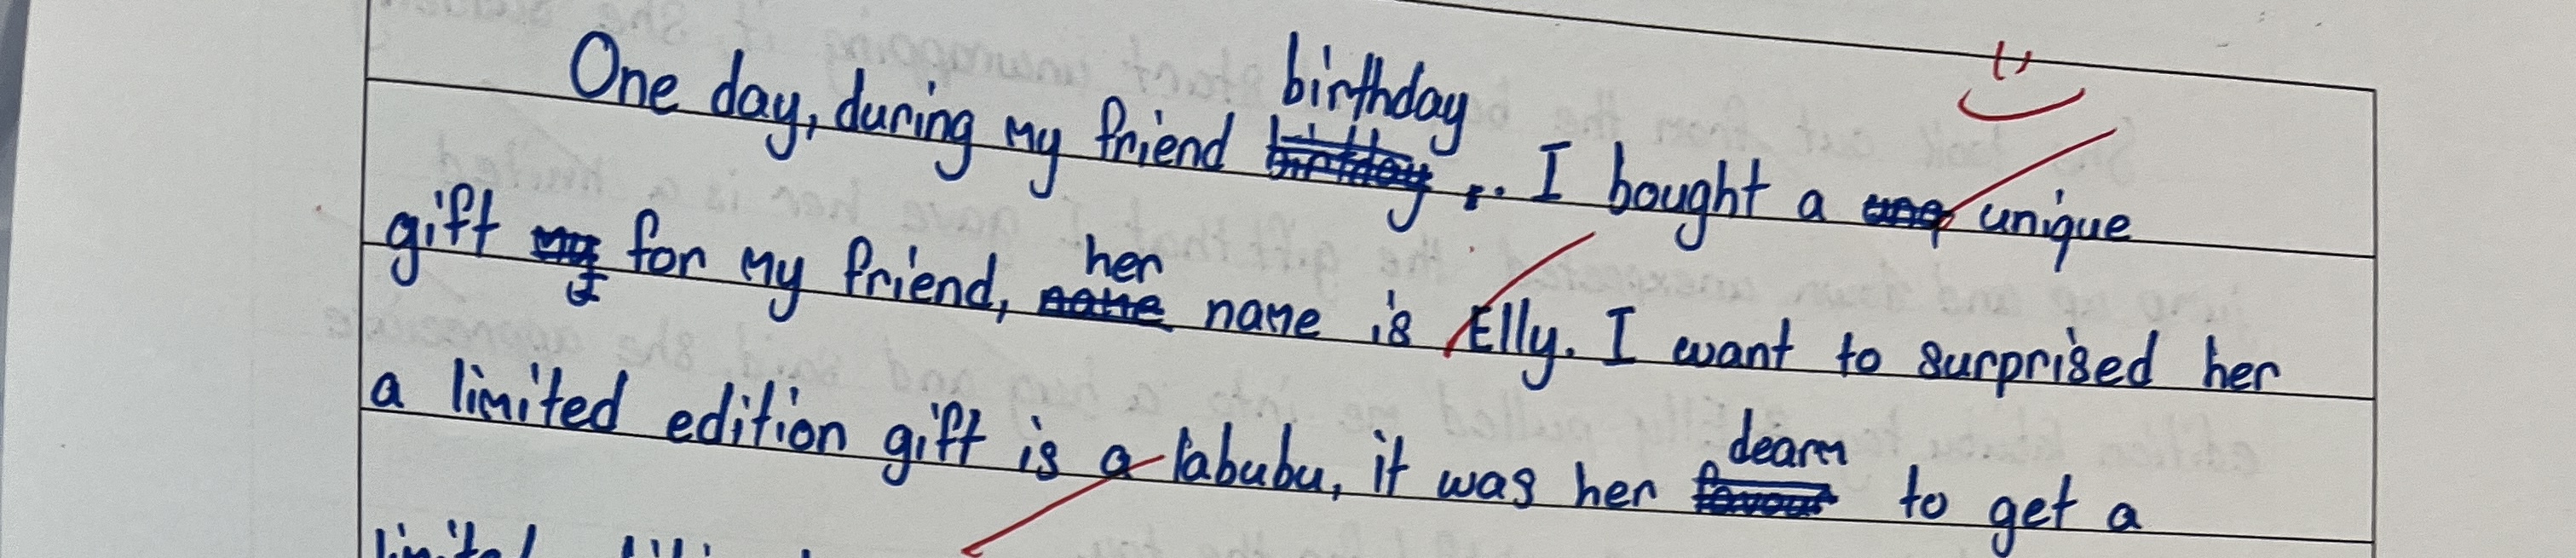 One day, during my friend birthday, . I bought a unique
gift for my friend, her name is Elly. I want to surprised her
a limited edition gift is a labubu, it was her dearm to get a